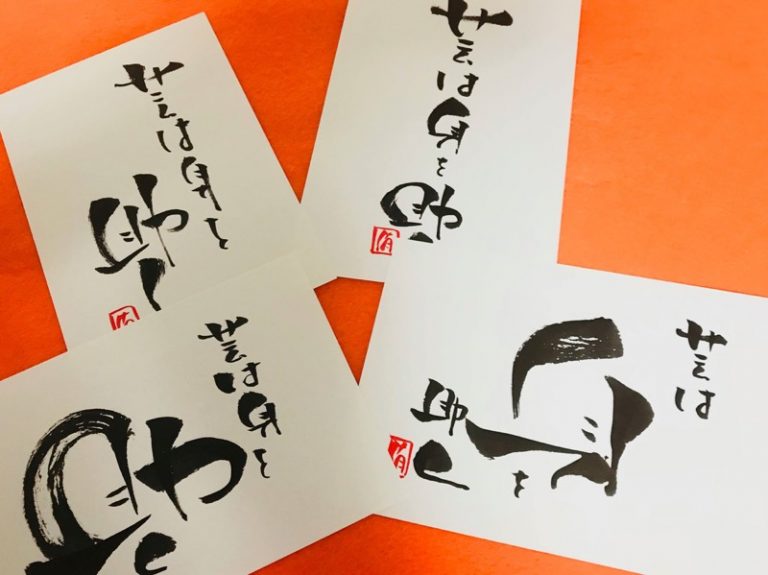 芸は身を
助く
芸は身を助
芸は身を
助く
芸は
身を
助く